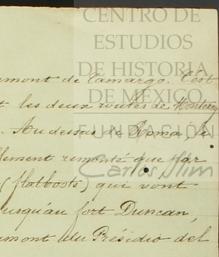 CENTRO DE
ESTUDIOS
DE HISTORIA
DE MÉXICO
FUNDACIÓN
Carlos Slim
emont de Camargo. C'est
t les deux routes de
. Au dessus de Roma, le
lement remonté que par
(flatboats) qui vont
jusqu'au fort Duncan,
amont du Présidio del